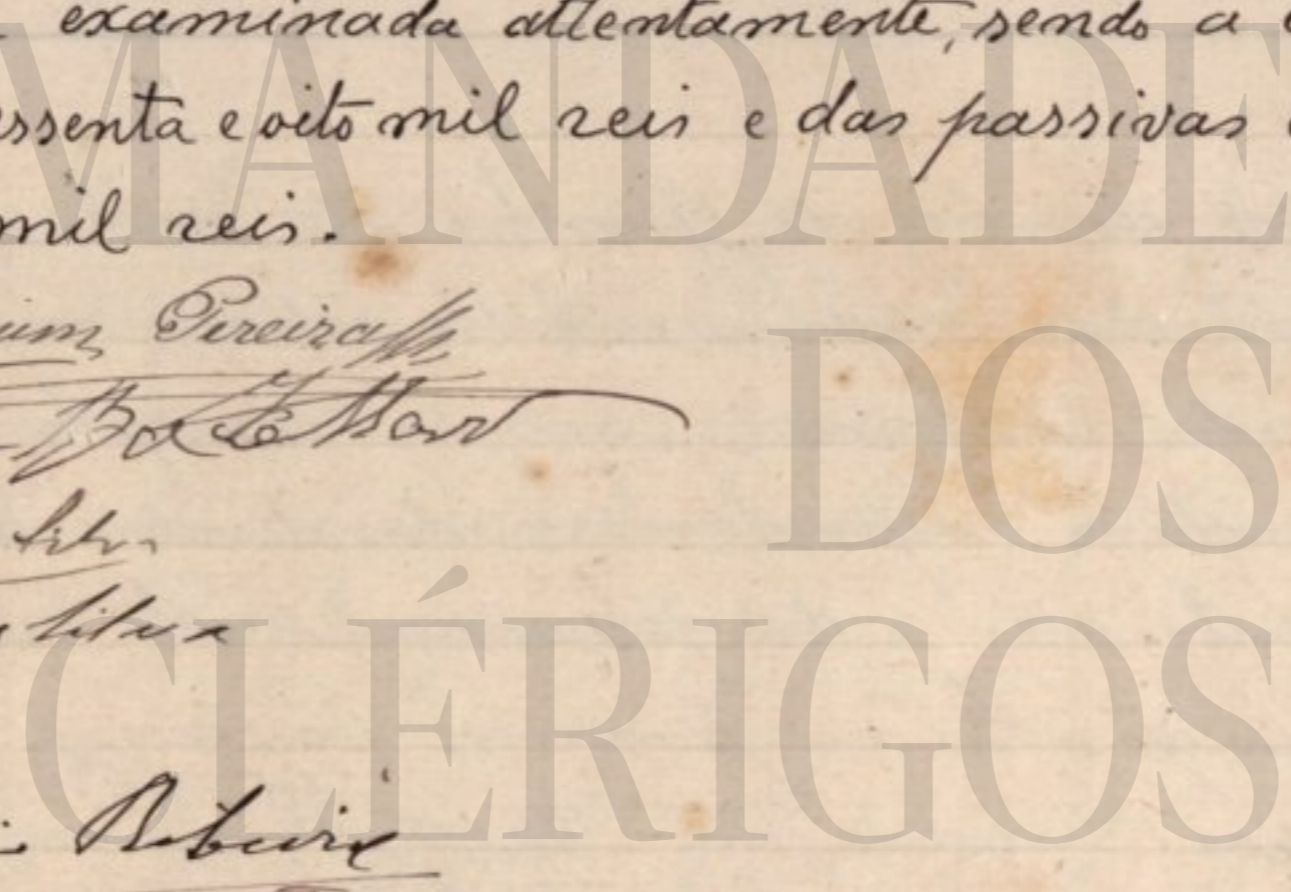 examinada attentamente, sendo a
essenta e oito mil reis e das passivas
mil reis.
Pereira
Silva
Silva
Ribeiro
MANDADE
DOS
CLÉRIGOS